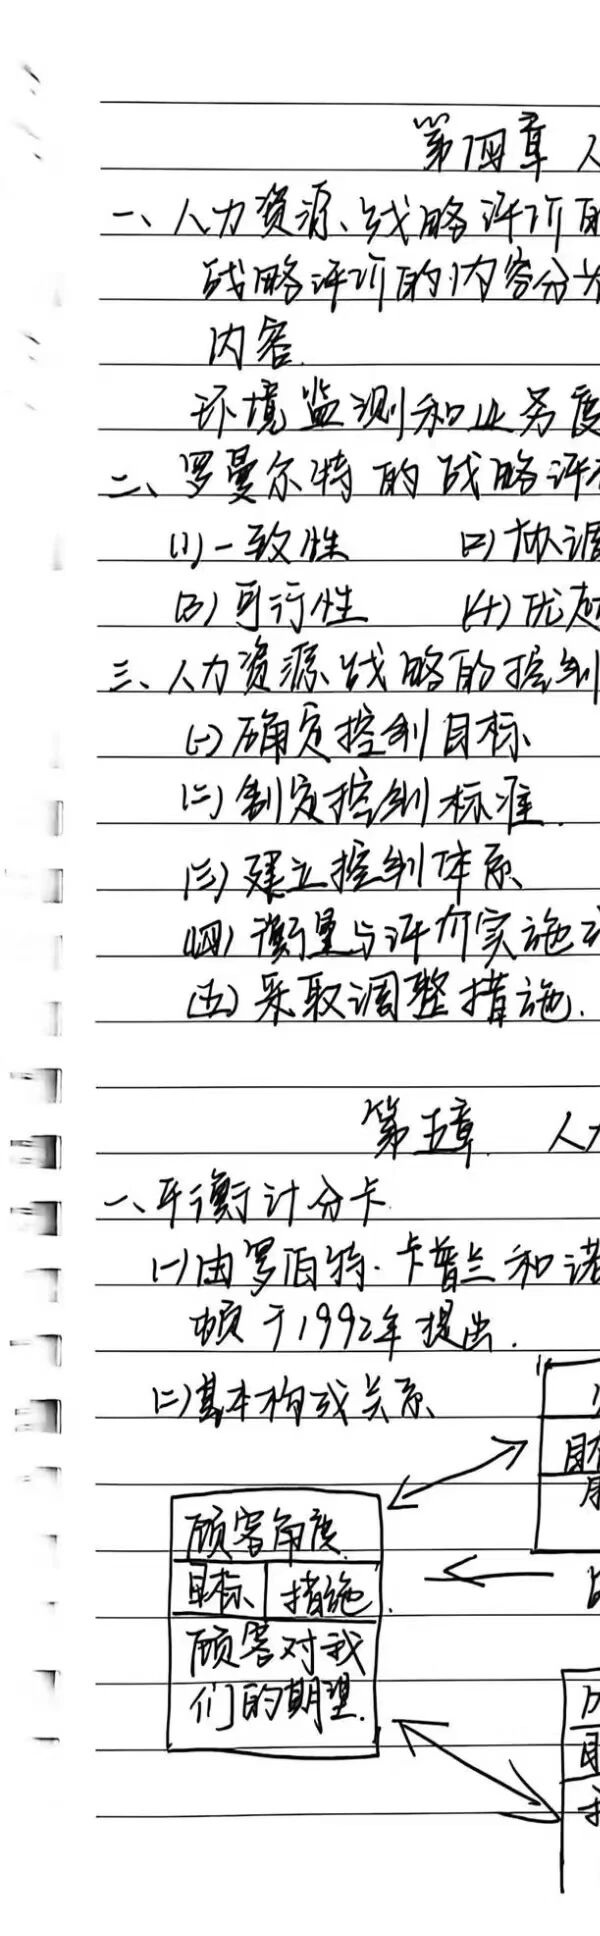 第四章 人
一、人力资源战略评价的
战略评价的内容分为
内容.
环境监测和业务度
二、罗曼尔特的战略评
(1)一致性 (2)协调
(3)可行性 (4)优越
三、人力资源战略的控制
(一)确定控制目标
(二)制定控制标准.
(三)建立控制体系
(四)衡量与评价实施
(五)采取调整措施.
第五章. 人力
一、平衡计分卡
(一)由罗伯特·卡普兰和诺
顿于1992年提出.
(二)基本构成关系
目标
顾客角度
目标 措施
顾客对我
们的期望.